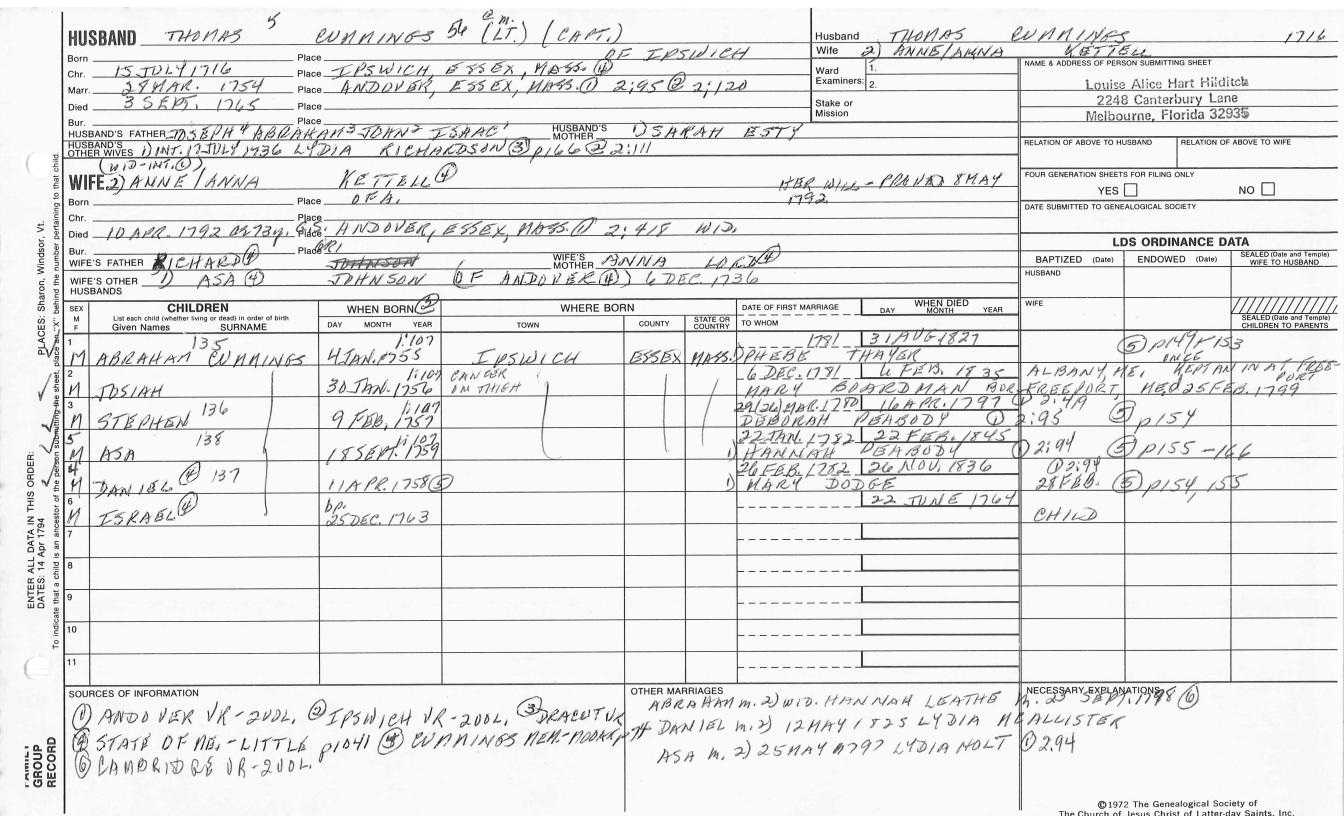 HUSBAND THOMAS 5 CUMMINGS 56 (LT.) (CAPT.)
Born Place OF IPSWICH
Chr. 15 JULY 1716 Place IPSWICH ESSEX, MASS. ④
Marr. 28 MAR. 1754 Place ANDOVER, ESSEX, MASS. ① 2:95 ② 2:120
Died 3 SEPT. 1765 Place
Bur. Place
HUSBAND'S FATHER JOSEPH4 ABRAHAM3 JOHN2 ISAAC1 HUSBAND'S MOTHER 1) SARAH ESTY
HUSBAND'S OTHER WIVES 1) INT. 17 JULY 1736 LYDIA RICHARDSON ③ p166 ② 2:111
(WID-INT. ①)
WIFE 2) ANNE/ANNA KETTELL ④ HER WILL - PROVED 8 MAY 1792
Born Place OF A.
Chr. Place
Died 10 APR. 1792 ae 73y. G.S. Place ANDOVER, ESSEX, MASS. ① 2:418 WID.
Bur. Place
WIFE'S FATHER RICHARD ④ WIFE'S MOTHER ANNA LORD ④
WIFE'S OTHER HUSBANDS 1) ASA ④ JOHNSON (OF ANDOVER ④) 6 DEC. 1736
Husband THOMAS CUMMINGS 1716
Wife 2) ANNE/ANNA KETTELL
Ward
Examiners: 1.
2.
Stake or
Mission
NAME & ADDRESS OF PERSON SUBMITTING SHEET
Louise Alice Hart Hilditch
2248 Canterbury Lane
Melbourne, Florida 32935
RELATION OF ABOVE TO HUSBAND RELATION OF ABOVE TO WIFE
FOUR GENERATION SHEETS FOR FILING ONLY
YES NO
DATE SUBMITTED TO GENEALOGICAL SOCIETY
LDS ORDINANCE DATA
BAPTIZED (Date) ENDOWED (Date) SEALED (Date and Temple) WIFE TO HUSBAND
HUSBAND
WIFE
SEALED (Date and Temple) CHILDREN TO PARENTS
SEX M F CHILDREN WHEN BORN ⑤ WHERE BORN DATE OF FIRST MARRIAGE WHEN DIED
List each child (whether living or dead) in order of birth
Given Names SURNAME DAY MONTH YEAR TOWN COUNTY STATE OR COUNTRY TO WHOM DAY MONTH YEAR
1 135 1:107 1781 31 AUG 1827
M ABRAHAM CUMMINGS 4 JAN. 1755 IPSWICH ESSEX MASS. 1) PHEBE THAYER ⑤ p149, 153
2 1:107 CANCER ON THIGH 6 DEC. 1781 6 FEB. 1835 ALBANY, ME. ONCE KEPT AN IN AT FREEPORT
M JOSIAH 30 JAN. 1756 MARY BOARDMAN FREEPORT, ME. 25 FEB. 1799
3 136 1:107 29/26 MAR. 1780 16 APR. 1797 ① 2:419
M STEPHEN 9 FEB. 1757 DEBORAH PEABODY ① 2:95 ⑤ p154
5 138 1:107 22 JAN. 1782 22 FEB. 1845
M ASA 18 SEPT. 1759 1) HANNAH PEABODY ① 2:94 ⑤ p155-166
4 137 26 FEB. 1782 26 NOV. 1836 ① 2:94
M DANIEL ④ 11 APR. 1758 ⑤ 1) MARY DODGE 28 FEB. ⑤ p154, 155
6 bp. 22 JUNE 1764
M ISRAEL ④ 25 DEC. 1763 CHILD
7
8
9
10
11
SOURCES OF INFORMATION
① ANDOVER VR-2VOL. ② IPSWICH VR-2VOL. ③ DRACUT VR
④ STATE OF ME.-LITTLE p1041 ⑤ CUMMINGS MEM-MOOAR
⑥ CAMBRIDGE VR-2VOL.
OTHER MARRIAGES
ABRAHAM m. 2) WID. HANNAH LEATHE m. 23 SEPT. 1798 ⑥
DANIEL m. 2) 12 MAY 1825 LYDIA MCALLISTER
ASA m. 2) 25 MAY 1797 LYDIA HOLT ① 2:94
NECESSARY EXPLANATIONS
©1972 The Genealogical Society of
The Church of Jesus Christ of Latter-day Saints, Inc.
ENTER ALL DATA IN THIS ORDER:
DATES: 14 Apr 1794 PLACES: Sharon, Windsor, Vt.
To indicate that a child is an ancestor of the person submitting the sheet, place an "X" behind the number pertaining to that child
FAMILY
GROUP
RECORD